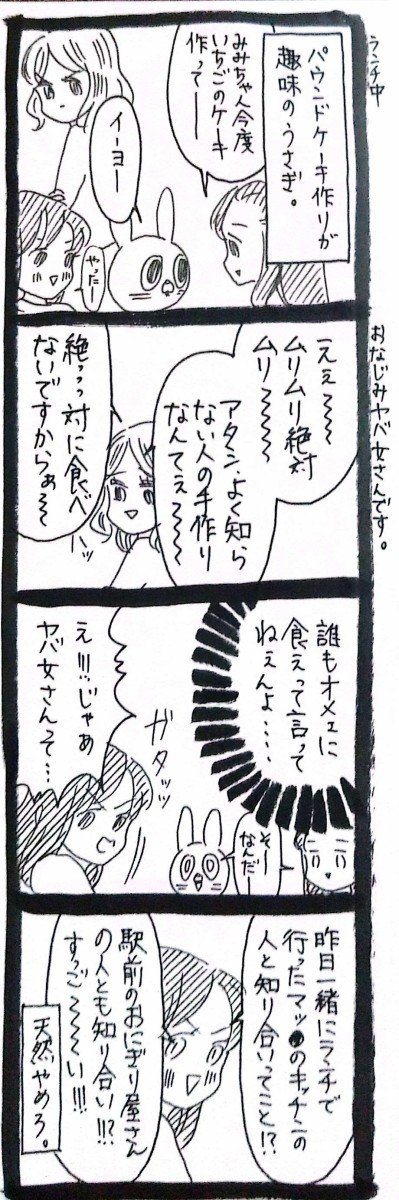 ランチ中
パウンドケーキ作りが
趣味のうさぎ。
みみちゃん今度
いちごのケーキ
作ってー
イーヨー
やったー
おなじみヤバ女さんです。
ええ〜〜
ムリムリ絶対
ムリ〜〜〜
アタシ、よく知ら
ない人の手作り
なんてえ〜〜
絶っっ対に食べ
ないですからぁ〜
ハッ
誰もオメェに
食えって言って
ねぇんよ....
そー
なんだー
ガタッッ
え!!!じゃあ
ヤバ女さんって…
昨日一緒にランチで
行ったマッ●のキッチンの
人と知り合いってこと!?
駅前のおにぎり屋さん
の人とも知り合い!!?
すっご〜〜〜い!!!
天然やめろ。